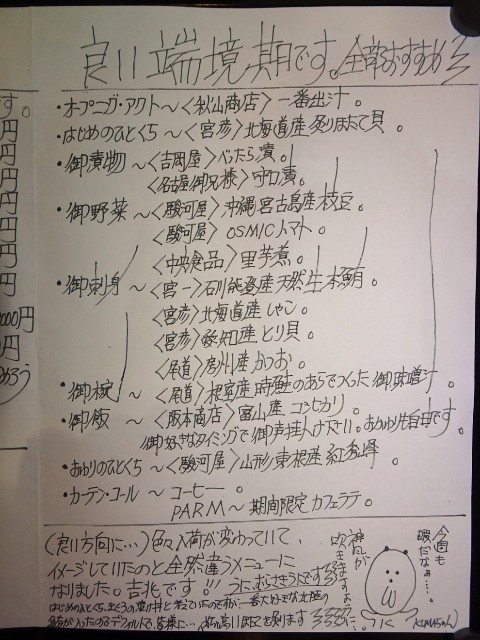 す。
円
円
円
円
円
円
円
000円
円
めろう
良い端境期です。全部おすすめ
・オープニング・アクト〜〈秋山商店〉一番出汁。
・はじめのひとくち〜〈宮彦〉北海道産炙りほたて貝。
・御漬物〜〈吉岡屋〉べったら漬。
〈名古屋御兄様〉守口漬。
・御野菜〜〈駿河屋〉沖縄宮古島産枝豆。
〈駿河屋〉OSMICトマト。
〈中央食品〉里芋煮。
・御刺身〜〈宮一〉石川能登産天然生本鮪。
〈宮彦〉北海道産しゃこ。
〈宮彦〉愛知産とり貝。
〈尾道〉房州産かつお。
・御椀〜〈尾道〉根室産時鮭のあらでつくった御味噌汁。
・御飯〜〈阪本商店〉富山産コシヒカリ。
御好きなタイミングで御声掛け下さい。おかわり自由です。
・おわりのひとくち〜〈駿河屋〉山形東根産紅秀峰。
・カーテン・コール〜コーヒー。
PARM〜期間限定カフェラテ。
(良い方向に…)色々入荷が変わっていて、
イメージしていたのと全然違うメニューに
なりました。吉兆です!!うに、むらさきうにです
はじめのひとくち、まぐろの
神風が
吹きますよ
今週も
暇だなぁ…。
KUMAちゃん